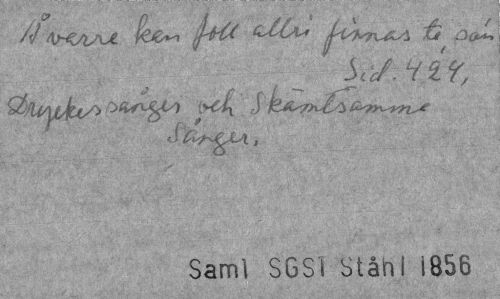 Å värre kan foll allri finnas te sån
Sid. 424,
Dryckessånger och Skämtsamma
Sånger.
Saml SGST Ståhl 1856